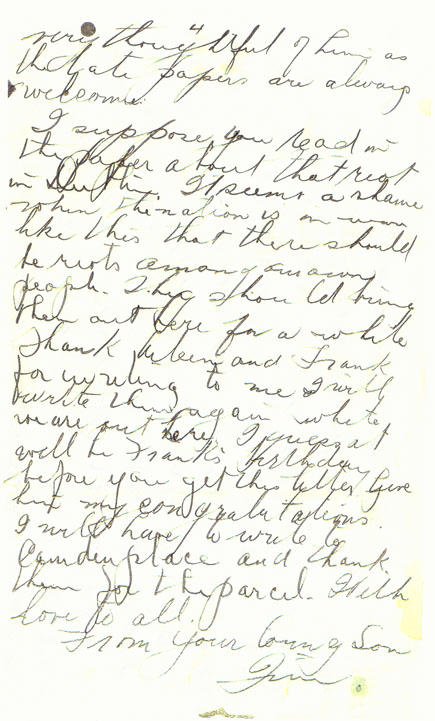 4
very thoughtful of him as
the late papers are always
welcome.
I suppose you read in
the paper about that riot
in Dublin. It seems a shame
when the nation is in war
like this that there should
be riots among our own
people. They should bring
them out here for a while
Thank Aileen and Frank
for writing to me I will
write them again while
we are out here. I guess it
will be Frank's birthday
before you get this letter Give
him my congratulations.
I will have to write to
Camden place and thank
them for the parcel. With
love to all.
From your loving Son
Jim